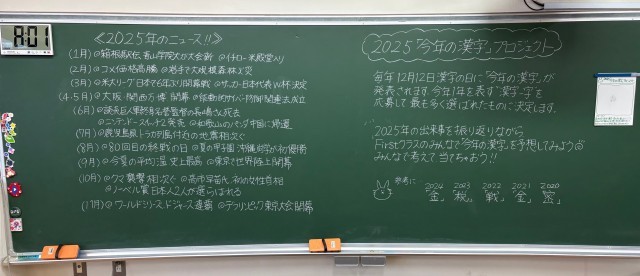 A:01
≪2025年のニュース!!≫
(1月) @箱根駅伝 青山学院大が大会新 @イチロー米殿堂入り
(2月) @コメ価格高騰 @岩手で大規模森林火災
(3月) @米大リーグ日本で6年ぶり開幕戦 @サッカー日本代表W杯決定
(4・5月) @大阪・関西万博 開幕 @能動的サイバー防御関連法成立
(6月) @読売巨人軍終身名誉監督の長嶋さん死去
@ニンテンドースイッチ2発売 @和歌山のパンダ中国に帰還
(7月) @鹿児島県トカラ列島付近の地震相次ぐ
(8月) @80回目の終戦の日 @夏の甲子園 沖縄尚学が初優勝
(9月) @今夏の平均気温 史上最高 @東京で世界陸上開幕
(10月) @クマ襲撃相次ぐ @高市早苗氏 初の女性首相
@ノーベル賞日本人2人が選ばれる
(11月) @ワールドシリーズ、ドジャース連覇 @デフリンピック東京大会開幕
2025「今年の漢字」プロジェクト
毎年12月12日漢字の日に「今年の漢字」が
発表されます。今年1年を表す漢字一字を
応募して最も多く選ばれたものに決定します。
2025年の出来事を振り返りながら
Firstクラスのみんなで「今年の漢字」を予想してみよう
みんなで考えて当てちゃおう!!
参考に
2024 2023 2022 2021 2020
「金」「税」「戦」「金」「密」